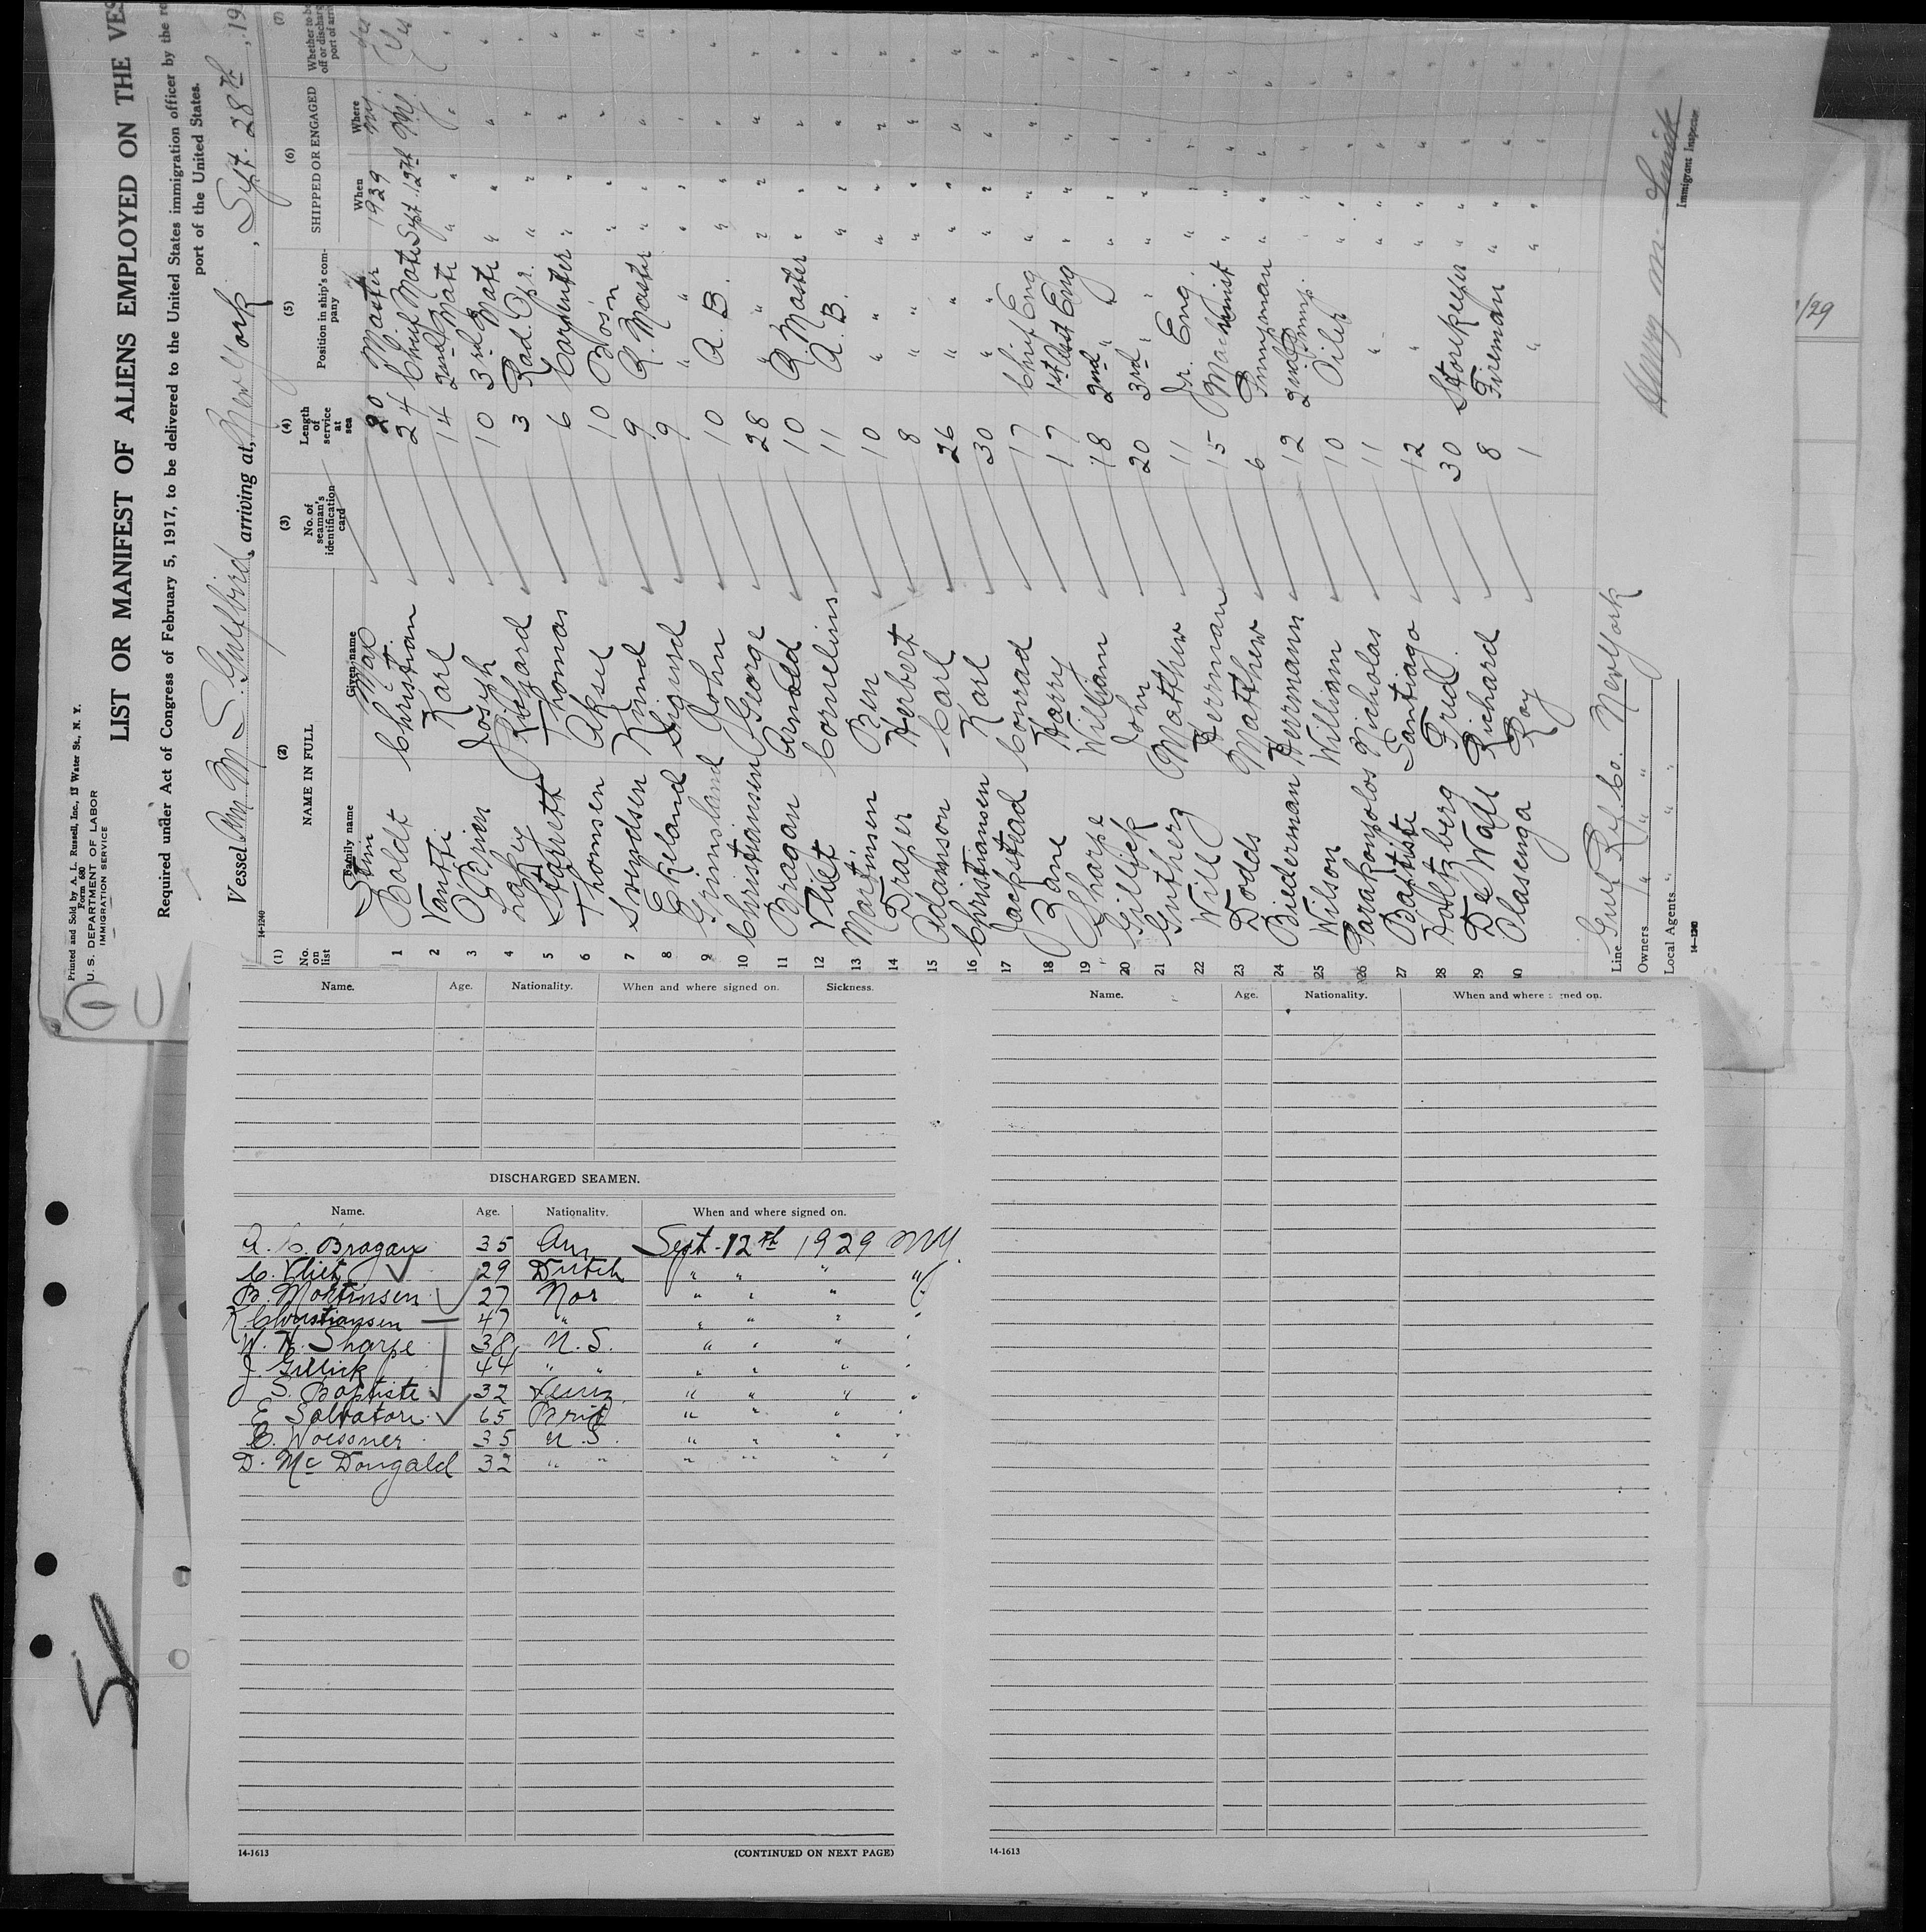 Printed and Sold by A. L. Russell, Inc., 13 Water St., N. Y.
Form 680
U. S. DEPARTMENT OF LABOR
IMMIGRATION SERVICE
LIST OR MANIFEST OF ALIENS EMPLOYED ON THE VES
Required under Act of Congress of February 5, 1917, to be delivered to the United States immigration officer by the re
port of the United States.
Vessel Am M S. Gulfbird, arriving at, New York, Sept. 28th, 19
14-1240
(1) (2) (3) (4) (5) (6) (7)
No. on list NAME IN FULL No. of seaman's identification card Length of service at sea Position in ship's company SHIPPED OR ENGAGED
Family name Given name When Where
Stim Max 20 Master 1929 NY
1 Boldt Christian 24 Chief Mate Sept. 12th NY
2 Vantti Karl 14 2nd Mate " "
3 O'Brien Joseph 10 3rd Mate " "
4 Lahy Richard 3 Rad. Opr. " "
5 Starrett Thomas 6 Carpenter " "
6 Thomsen Aksel 10 Bos'n " "
7 Svendsen Knud 9 Q. Master " "
8 Ekeland Sigurd 9 " " "
9 Grimsland John 10 A. B. " "
10 Christiansen George 28 " " "
11 Bragan Arnold 10 Q. Master " "
12 Vliet Cornelius 11 A. B. " "
13 Martinsen Ben 10 " " "
14 Fraser Herbert 8 " " "
15 Adamson Carl 26 " " "
16 Christiansen Karl 30 " " "
17 Jackstead Conrad 17 Chief Eng " "
18 Zane Harry 17 1st Asst Eng " "
19 Sharpe William 18 2nd " " "
20 Gillick John 20 3rd " " "
21 Gutherz Matthew 11 Jr. Eng. " "
22 Will Herrman 15 Machinist " "
23 Dodds Matthew 6 Pumpman " "
24 Biederman Herrmann 12 2nd Pump. " "
25 Wilson William 10 Oiler " "
26 Parakomolos Nicholas 11 " " "
27 Baptiste Santiago 12 " " "
28 Holtzberg Fred. 30 Storekeeper " "
29 De Wall Richard 8 Fireman " "
30 Olasenga Roy 1 " " "
Line Gulf Ref. Co. New York
Owners " " "
Local Agents " " "
14-1240
Henry M. Smith
Immigrant Inspector
/29
Name. Age. Nationality. When and where signed on. Sickness.
DISCHARGED SEAMEN.
Name. Age. Nationality. When and where signed on.
A. C. Bragan 35 Am Sept. 12th 1929 NY
C. Vliet 29 Dutch " " " "
B. Martinsen 27 Nor " " " "
K. Christiansen 47 " " " " "
W. H. Sharpe 38 U. S. " " " "
J. Gillick 44 " " " " " "
S. Baptiste 32 " " " "
E Salvatori 65 Brit " " " "
E. Woessner 35 U. S. " " " "
D. Mc Dougald 32 " " " " " "
14-1613
(CONTINUED ON NEXT PAGE)
Name. Age. Nationality. When and where signed on.
14-1613